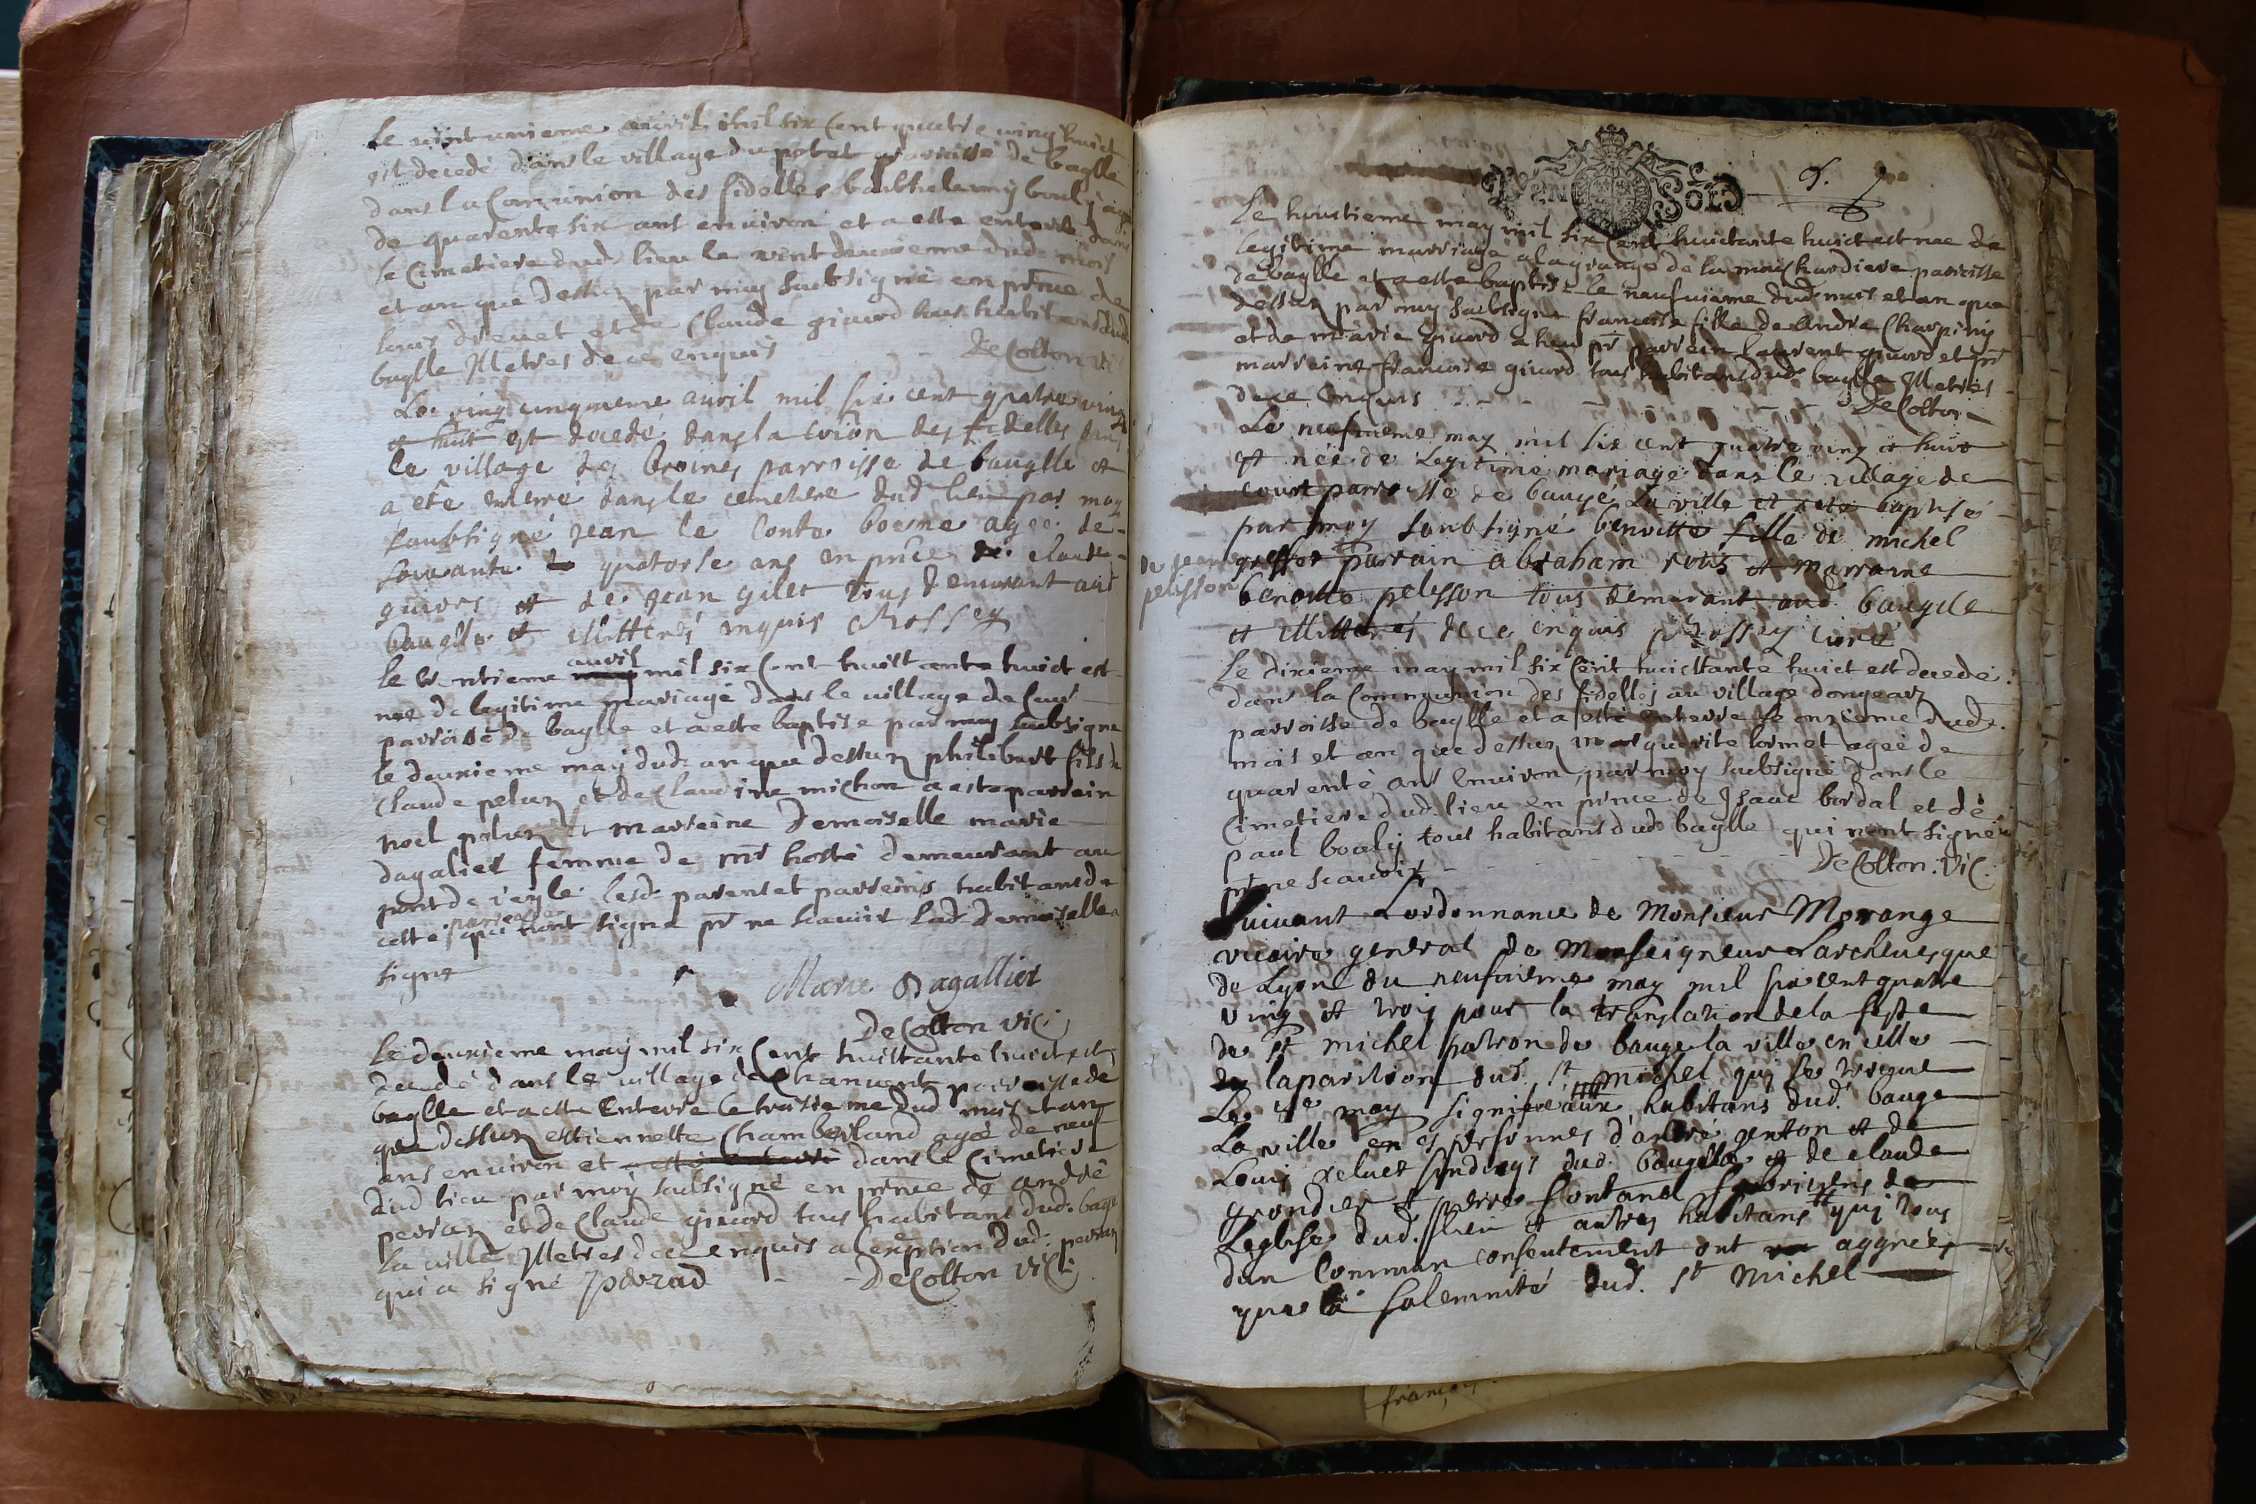 Le vint unieme avvril mil six Cent quatre ving huict
est decedé dans le village du potet parroisse de baglle
dans la Communion des fidelles barthelemy bouly agé
de quarente six ans environ et a esté enterré dans
le Cimetiere dud. lieu le vint deuxieme dud. mois
et an que dessus par moy soubsigné en prnce de
louis drevet et de Claude givord tous habitans dud.
baglle Illetres de ce enquis DeColton vic
Le ving cinquieme avril mil six cent quatre ving
et huit est decedé dans la coion des fidelles dans
le village des broines parroisse de bauglle et
a eté enterré dans le cemetiere dud. lieu par moy
soubsigné jean le Conte boeme agee de
soixante quatorse ans en prnce de claude
guives et de jean gilet tous demeurant aud.
baugllé et illitterés enquis Chossey
avril
le trentieme mil six Cent huittante huict est
nee de legitime mariage dans le village de Cour
parroisse de baglle et a esté baptisé par moy soubsigné
le deuxieme may dud. an que dessus philibert fils de
Claude pelus et de Claudine michon a esté parrein
noel pelus et marreine Demoiselle marie
dagalier femme de mr hosté demeurant au
pont de veyle lesd. parens et parreins habitans de
cette parroisse qui n'ont signé pr ne scavoir lad. Demoiselle a
signé
Marie Dagallier
DeColton vic.
Le deuxieme may mil six Cent huittante huict est
decedé dans le village de Chanvent parroisse de
baglle et a esté Enterré le troisieme dud. mois et an
que dessus estiennette Chamberland agée de neuf
ans environ et a esté enterré dans le Cimetiere
dud. lieu par moy soubsigné en prnce de andré
perras et de Claude givord tous habitans dud. bage
la ville Illetres de ce enquis a Exception dud. perras
qui a signé Perrad DeColton vic.
VEN SOLS
5.
Le huictieme may mil six Cent huictante huict est nee de
legitime marriage a la grange de la moschardiere parroisse
de baglle et a esté baptisé le neufvieme dud. mois et an que
dessus par moy soubsigné francoise fille de andré Charpiny
et de marie givord a heu pr parrein laurent givord et pr
marreine francoise givord tous habitans dud. baglle Illetres
de ce enquis DeColton
Le neufvieme may mil six cent quatre ving et huit
est née de Legitime mariage dans le village de
court parroisse de bauge La ville et eté baptisé
par moy soubsigné benoitte fille de michel
greffet parrain abraham et marraine
de jeane
pelisson
benoitte pelisson tous demurant aud. baugllé
et illitterés de ce enquis Chossey curé
Le dixieme may mil six Cent huictante huict est decedé
dans la Communion des fidelles au village dongear
parroisse de baglle et a esté enterré le onzieme dud.
mois et an que dessus marguerite lormet agée de
quarente ans environ par moy soubsigné dans le
Cimetiere dud. lieu en prnce de Isaac bordal et de
paul bouly tous habitans dud. baglle qui n'ont signé
pr ne scavoir DeColton. vic.
Suivant L'ordonnance de Monsieur Morange
vicaire general de Monseigneur Larchevesque
de Lyon du neufvieme may mil six cent quatre
ving et trois pour la translation de la feste
de St michel patron de bauge la ville en celle
de laparition dud. St michel qui se treuve
Le 8e may signifiée aux habitans dud. bauge
La ville en es personnes d'andré genton et de
Louis reluet sindicqs dud. baugllé et de claude
grondier et pierre fontanel fabriciens de
Leglise dud. lieu et autres habitans qui tous
dun Commun consentement ont aggréés
que la solemnité dud. St michel
francois